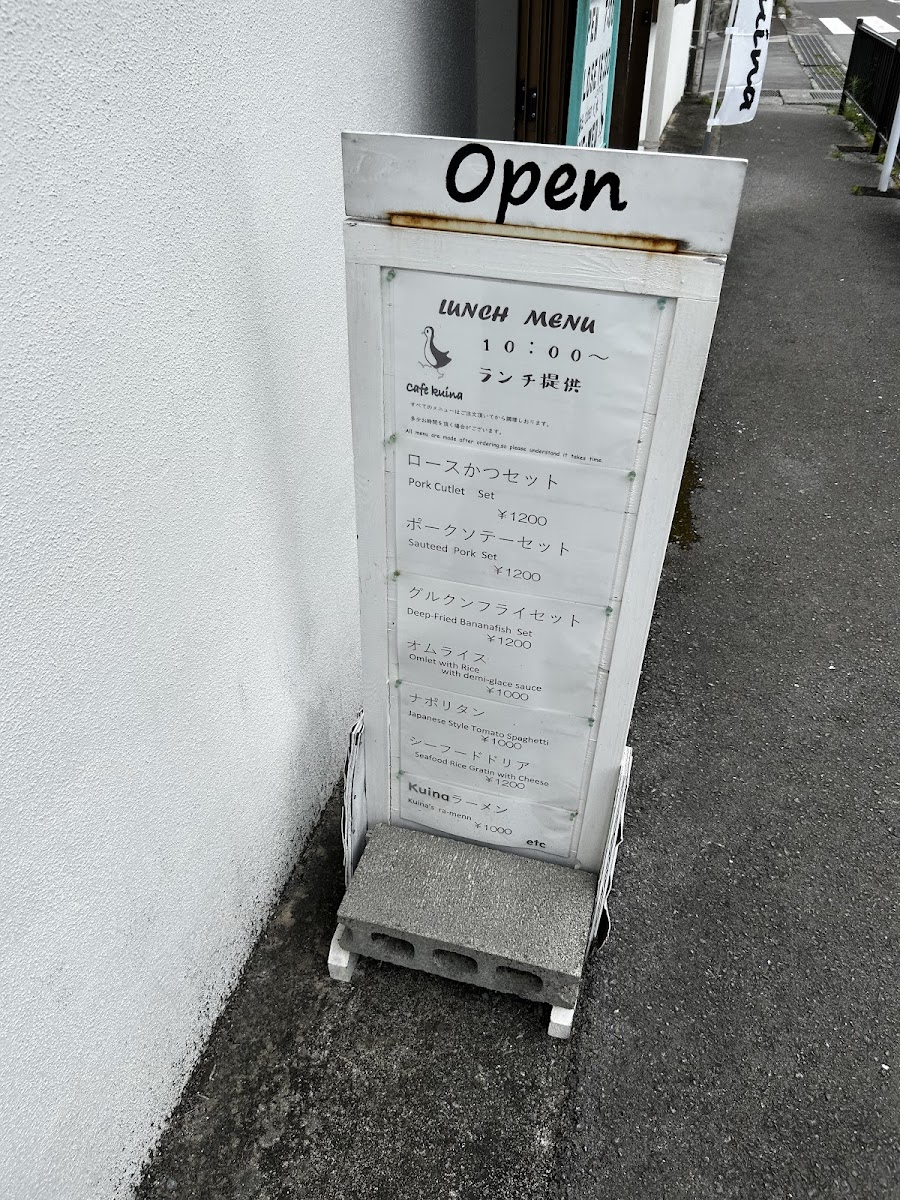 Open
LUNCH MENU
10:00~
ランチ提供
cafe kuina
すべてのメニューはご注文頂いてから調理しおります。
多少お時間を頂く場合がございます。
All menu are made after ordering,so please understand it takes time.
ロースかつセット
Pork Cutlet Set
¥1200
ポークソテーセット
Sauteed Pork Set
¥1200
グルクンフライセット
Deep-Fried Bananafish Set
¥1200
オムライス
Omlet with Rice
with demi-glace sauce
¥1000
ナポリタン
Japanese Style Tomato Spaghetti
¥1000
シーフードドリア
Seafood Rice Gratin with Cheese
¥1200
Kuinaラーメン
Kuina's ra-menn
¥1000
etc